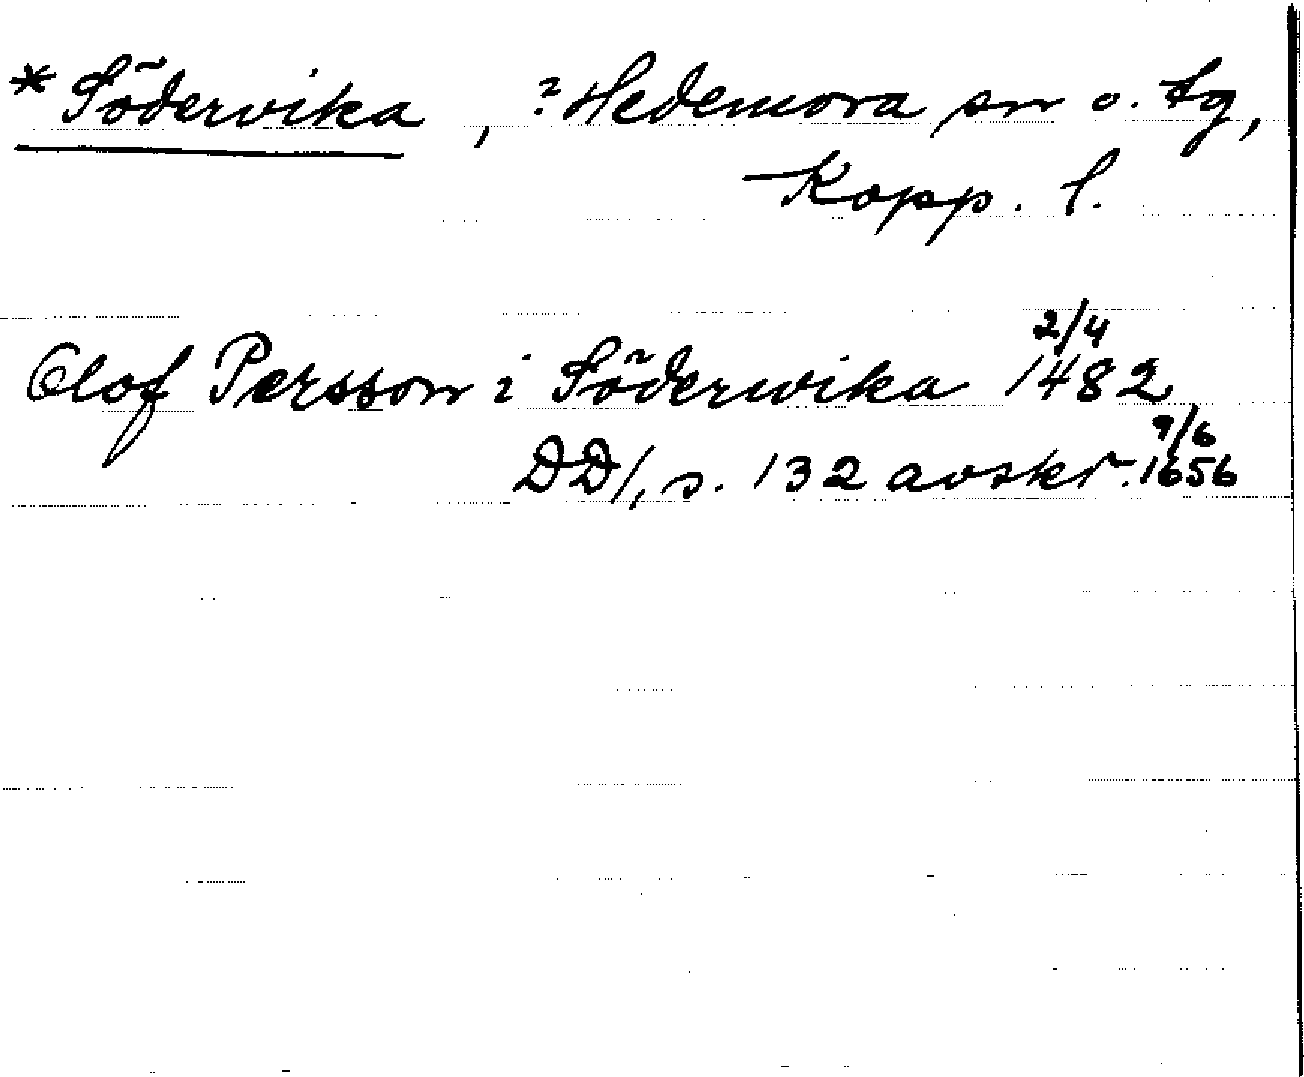 *Södervika, ?Hedemora sn o. tg,
Kopp. l.
Olof Persson i Söderwika 2/4 1482
DD1, s. 132 avskr. 9/6 1656